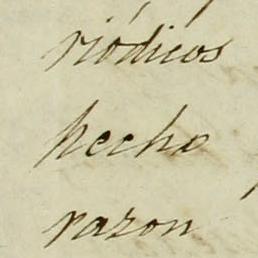 riódicos
hecho
razon